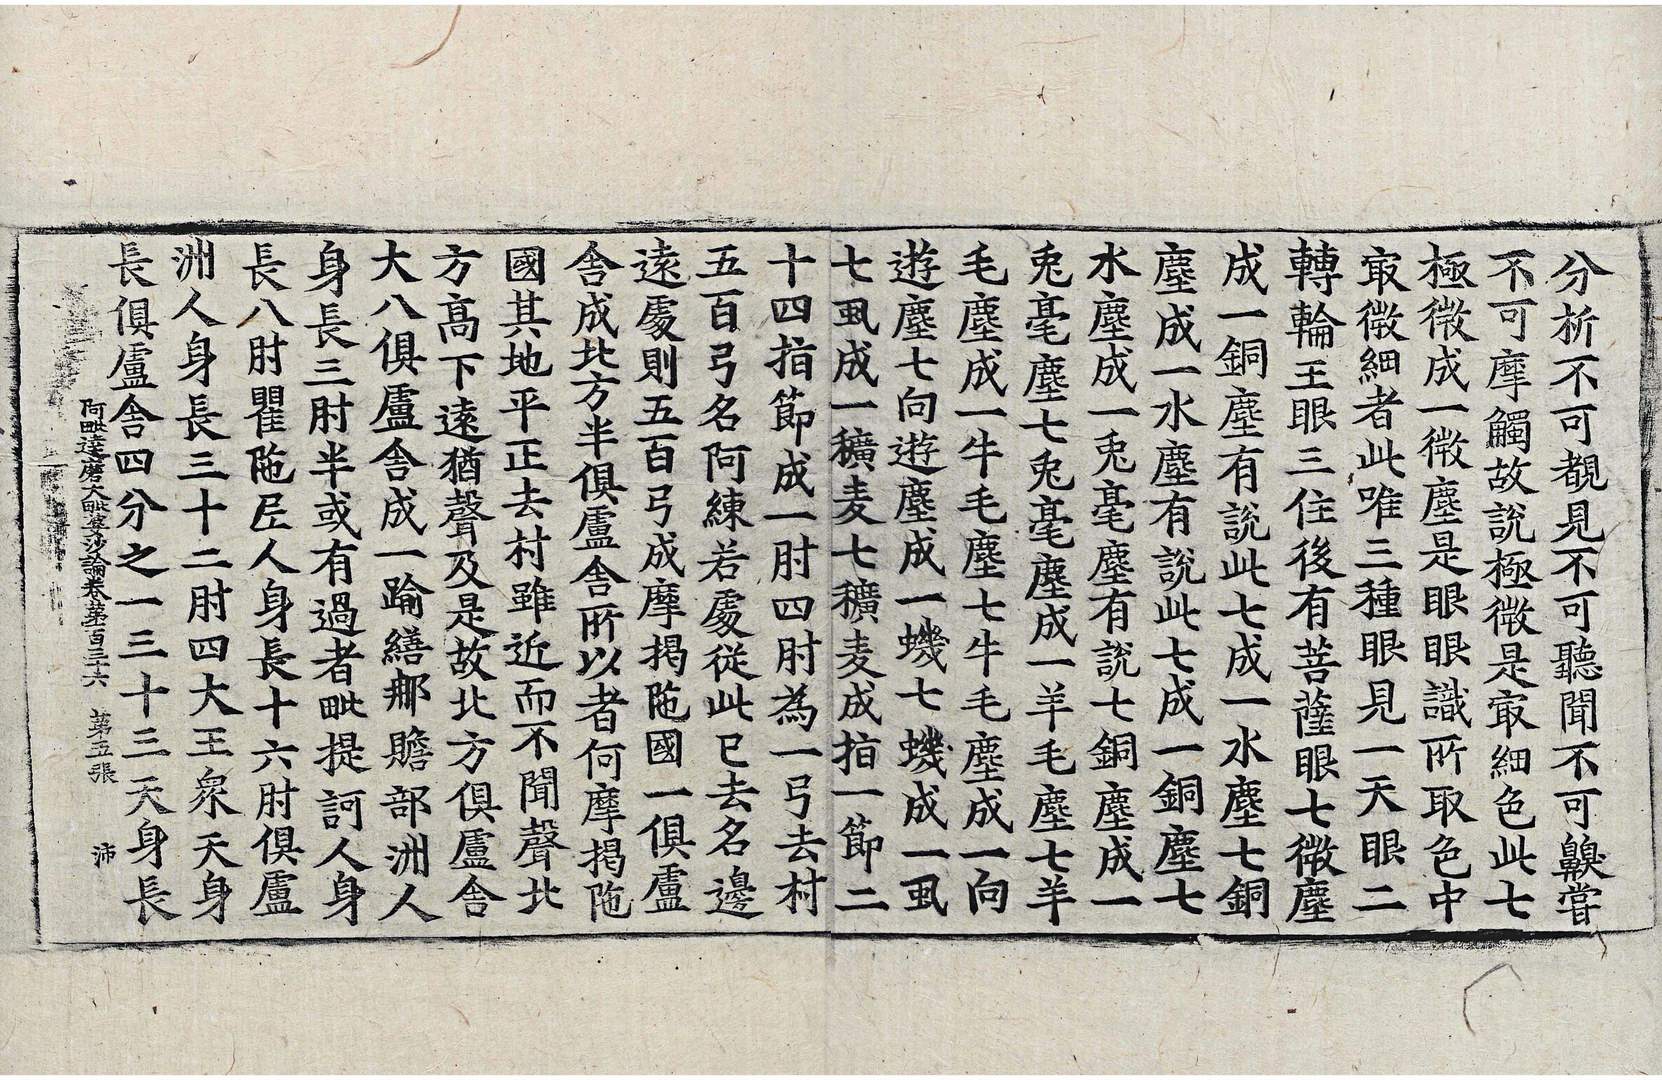 分析不可覩見不可聽聞不可齅嘗
不可摩觸故說極微是㝡細色此七
極微成一微塵是眼眼識所取色中
㝡微細者此唯三種眼見一天眼二
轉輪王眼三住後有菩薩眼七微塵
成一銅塵有說此七成一水塵七銅
塵成一水塵有說此七成一銅塵七
水塵成一兎毫塵有說七銅塵成一
兎毫塵七兎毫塵成一羊毛塵七羊
毛塵成一牛毛塵七牛毛塵成一向
遊塵七向遊塵成一蟣七蟣成一虱
七虱成一穬麦七穬麦成指一節二
十四指節成一肘四肘為一弓去村
五百弓名阿練若處從此已去名邊
遠處則五百弓成摩揭陁國一俱盧
舎成北方半俱盧舎所以者何摩揭陁
國其地平正去村雖近而不聞聲北
方高下遠猶聲及是故北方俱盧舎
大八俱盧舎成一踰繕那贍部洲人
身長三肘半或有過者毗提訶人身
長八肘瞿陁𡰱人身長十六肘俱盧
洲人身長三十二肘四大王衆天身
長俱盧舎四分之一三十三天身長
阿毗達磨大毗婆沙論卷苐百三十六 苐五張 沛